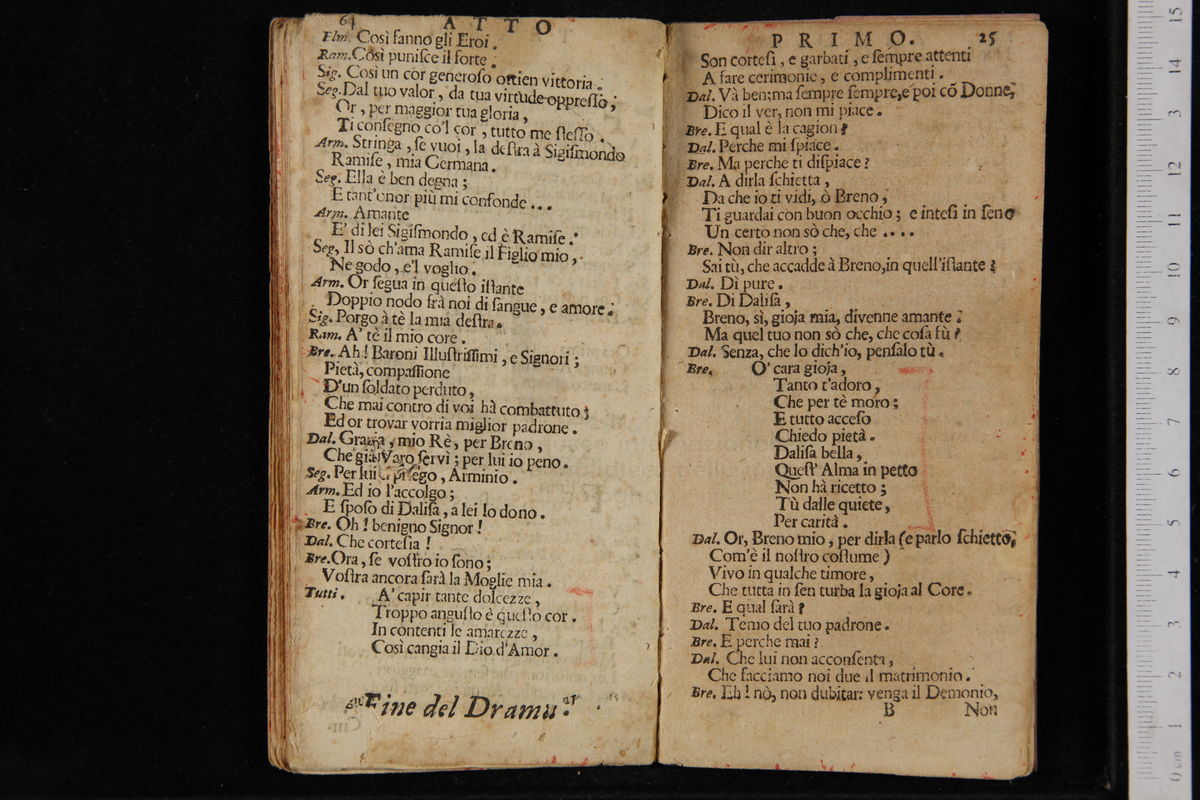 64 ATTO
Elm. Così fanno gli Eroi.
Ram. Così puniſce il forte.
Sig. Così un cor generoſo ottien vittoria.
Seg. Dal tuo valor, da tua virtude oppreſſo;
Or, per maggior tua gloria,
Ti conſegno co'l cor, tutto me ſteſſo.
Arm. Stringa, ſe vuoi, la deſtra à Sigiſmondo
Ramiſe, mia Germana.
Seg. Ella è ben degna;
E tant'onor più mi confonde...
Arm. Amante
E' di lei Sigiſmondo, ed è Ramiſe.
Seg, Il sò ch'ama Ramiſe il Figlio mio,
Ne godo, e'l voglio.
Arm. Or ſegua in queſto iſtante
Doppio nodo frà noi di ſangue, e amore.
Sig. Porgo à tè la mia deſtra.
Ram. A' tè il mio core.
Bre. Ah! Baroni Illuſtriſſimi, e Signori;
Pietà, compaſſione
D'un ſoldato perduto,
Che mai contro di voi hà combattuto;
Ed or trovar vorria miglior padrone.
Dal. Grazia, mio Rè, per Breno,
Che già Varo ſervì; per lui io peno.
Seg. Per lui ti priego, Arminio.
Arm. Ed io l'accolgo;
E ſpoſo di Daliſa, a lei lo dono.
Bre. Oh! benigno Signor!
Dal. Che corteſia!
Bre. Ora, ſe voſtro io ſono;
Voſtra ancora ſarà la Moglie mia.
Tutti. A' capir tante dolcezze,
Troppo anguſto è queſto cor.
In contenti le amarezze,
Così cangia il Dio d'Amor.
Fine del Drama.
PRIMO. 25
Son corteſi, e garbati, e ſempre attenti
A fare cerimonie, e complimenti.
Dal. Và ben; ma ſempre ſempre, e poi cõ Donne,
Dico il ver, non mi piace.
Bre. E qual è la cagion?
Dal. Perche mi ſpiace.
Bre. Ma perche ti diſpiace?
Dal. A dirla ſchietta,
Da che io ti vidi, ò Breno,
Ti guardai con buon occhio; e inteſi in ſeno
Un certo non sò che, che....
Bre. Non dir altro;
Sai tù, che accadde à Breno, in quell'iſtante?
Dal. Dì pure.
Bre. Di Daliſa,
Breno, sì, gioja mia, divenne amante.
Ma quel tuo non sò che, che coſa fù?
Dal. Senza, che lo dich'io, penſalo tù.
Bre. O' cara gioja,
Tanto t'adoro,
Che per tè moro;
E tutto acceſo
Chiedo pietà.
Daliſa bella,
Queſt' Alma in petto
Non hà ricetto;
Tù dalle quiete,
Per carità.
Dal. Or, Breno mio, per dirla (e parlo ſchietto,
Com'è il noſtro coſtume)
Vivo in qualche timore,
Che tutta in ſen turba la gioja al Core.
Bre. E qual ſarà?
Dal. Temo del tuo padrone.
Bre. E perche mai?
Dal. Che lui non acconſenta,
Che facciamo noi due il matrimonio.
Bre. Eh! nò, non dubitar: venga il Demonio,
B Non